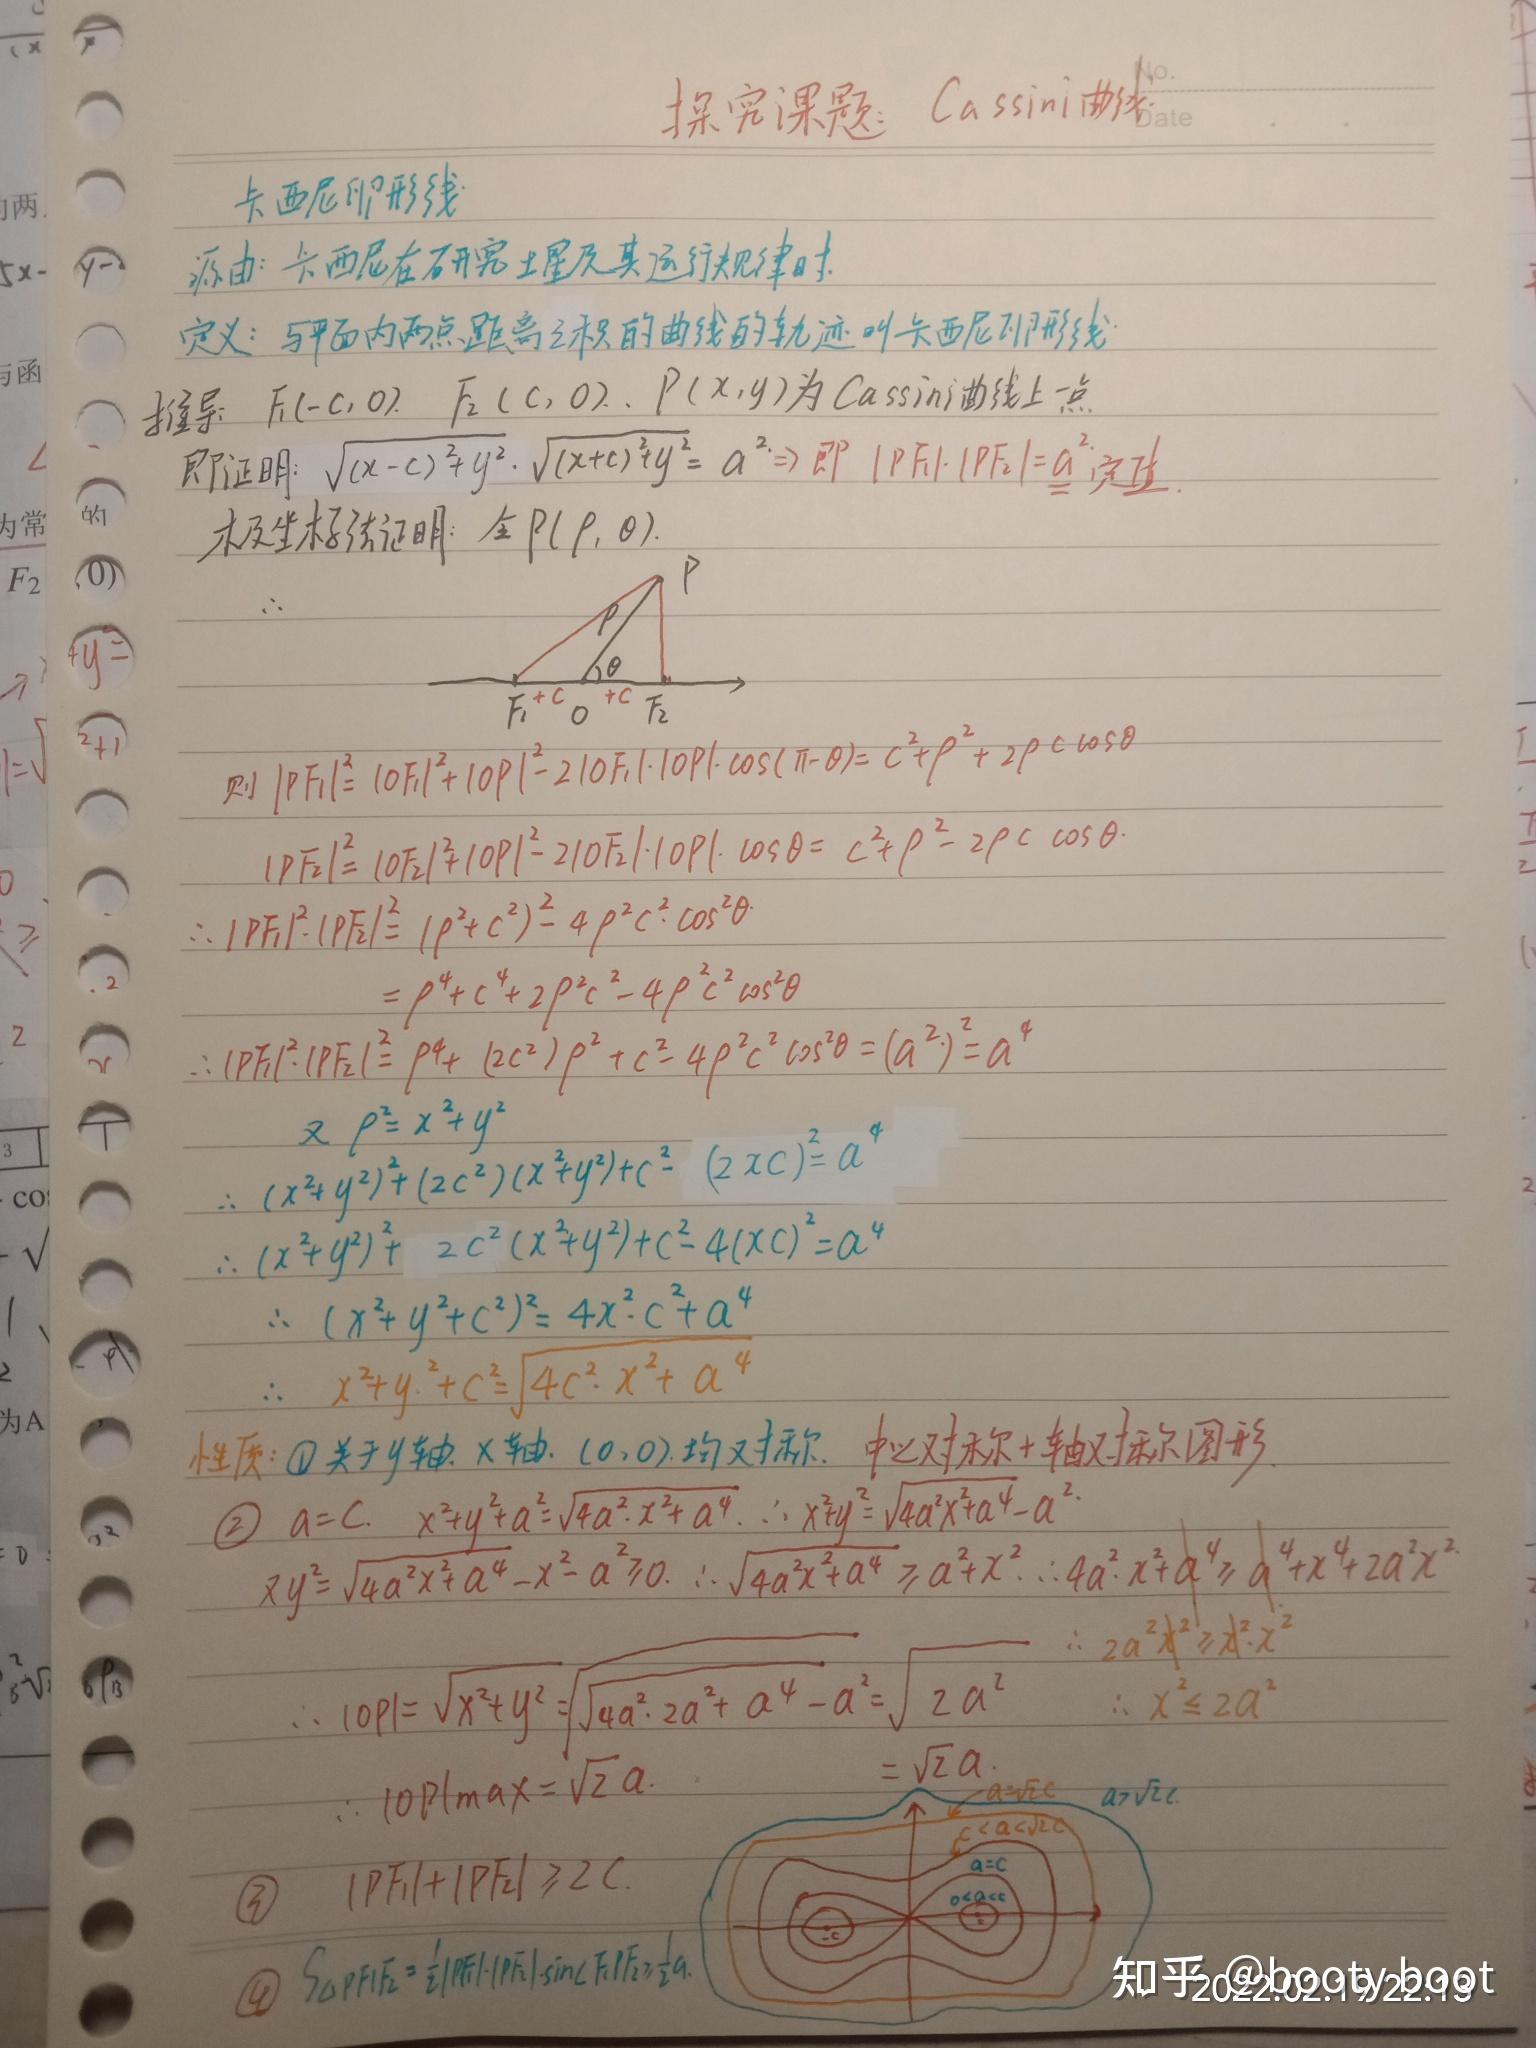 No.
Date
探究课题: Cassini曲线
卡西尼卵形线
源由: 卡西尼在研究土星及其运行规律时.
定义: 与平面内两点距离之积的曲线的轨迹叫卡西尼卵形线.
推导: F₁(-c,0). F₂(c,0). P(x,y)为Cassini曲线上一点
即证明: √((x-c)²+y²)·√((x+c)²+y²)=a²⇒即|PF₁|·|PF₂|=a².定值.
极坐标法证明: 令P(ρ,θ).
∴
P
ρ
θ
F₁ +c O +c F₂
则|PF₁|²=|OF₁|²+|OP|²-2|OF₁|·|OP|·cos(π-θ)=c²+ρ²+2ρc cosθ
|PF₂|²=|OF₂|²+|OP|²-2|OF₂|·|OP|·cosθ=c²+ρ²-2ρc cosθ.
∴|PF₁|²·|PF₂|²=(ρ²+c²)²-4ρ²c²·cos²θ
=ρ⁴+c⁴+2ρ²c²-4ρ²c²cos²θ
∴|PF₁|²·|PF₂|²=ρ⁴+(2c²)ρ²+c²-4ρ²c²cos²θ=(a²)²=a⁴
又ρ²=x²+y²
∴(x²+y²)²+(2c²)(x²+y²)+c²-(2xc)²=a⁴
∴(x²+y²)²+2c²(x²+y²)+c²-4(xc)²=a⁴
∴(x²+y²+c²)²=4x²·c²+a⁴
∴x²+y²+c²=√(4c²·x²+a⁴)
性质: ①关于y轴. x轴. (0,0).均对称. 中心对称+轴对称图形.
②a=c. x²+y²+a²=√(4a²·x²+a⁴). ∴x²+y²=√(4a²x²+a⁴)-a².
又y²=√(4a²x²+a⁴)-x²-a²≥0. ∴√(4a²x²+a⁴)≥a²+x². ∴4a²·x²+a⁴≥a⁴+x⁴+2a²x².
∴2a²x²≥x²·x²
∴|OP|=√(x²+y²)=√(√(4a²·2a²+a⁴)-a²)=√(2a²) ∴x²≤2a²
=√2a.
∴|OP|max=√2a.
a=√2c
a>√2c
c<a<√2c
③|PF₁|+|PF₂|≥2c.
a=c
0<a<c
-c c
④S△PF1F2=½|PF₁|·|PF₂|·sin∠F₁PF₂≥½a.
知乎 @booty boot
2022.02.19 22:13